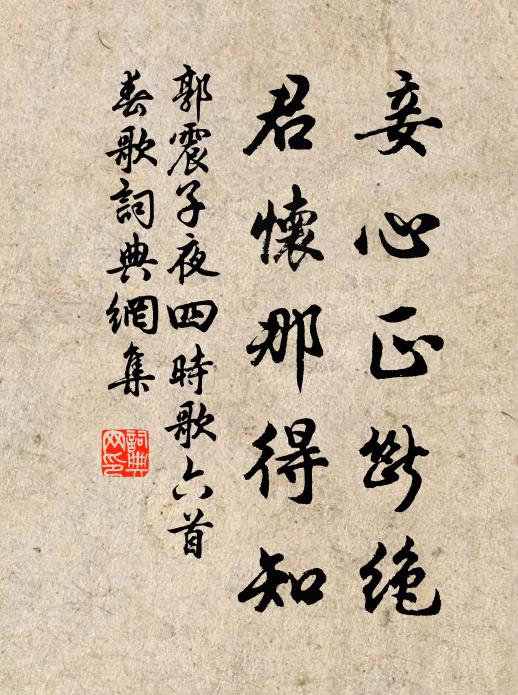 妾心正斷絶
君懷那得知
郭震子夜四時歌六首
春歌詞典網集
詞典網印